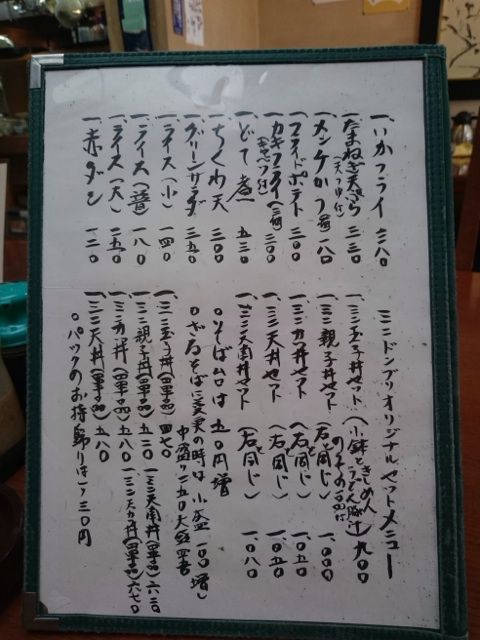 一、いかフライ 三八〇
一、だまねぎ天ぷら(天つゆ付) 三三〇
一、メンチかつ 一八〇
一、フライドポテト 三〇〇
一、カキフライ(三個)(キャベツ付) 三〇〇
一、どて煮 五三〇
一、ちくわ天 三〇〇
一、グリーンサラダ 三五〇
一、ライス(小) 一四〇
一、ライス(普) 一八〇
一、ライス(大) 二五〇
一、赤ダシ 一二〇
ミニドンブリオリジナルセットメニュー
一、ミニ玉子丼セット(小鉢ときしめん うどん 豚汁のその一品に) 九〇〇
一、ミニ親子丼セット(右と同じ) 一、〇〇〇
一、ミニカツ丼セット(右と同じ) 一、〇五〇
一、ミニ天丼セット(右と同じ) 一、〇五〇
一、ミニ天南丼セット(右と同じ) 一、〇八〇
○そば ムロは 五〇円増
○ざるそばに変更の時は 小盛一〇〇増
中盛り二五〇 大盛四〇〇
一、ミニ玉子丼(単品) 四七〇
一、ミニ親子丼(単品) 五二〇
一、ミニカツ丼(単品) 五八〇
一、ミニ天丼(単品) 五八〇
一、ミニ天南丼(単品) 六二〇
一、ミニ天カツ丼(単品) 六七〇
○パックのお持帰りは、三〇円